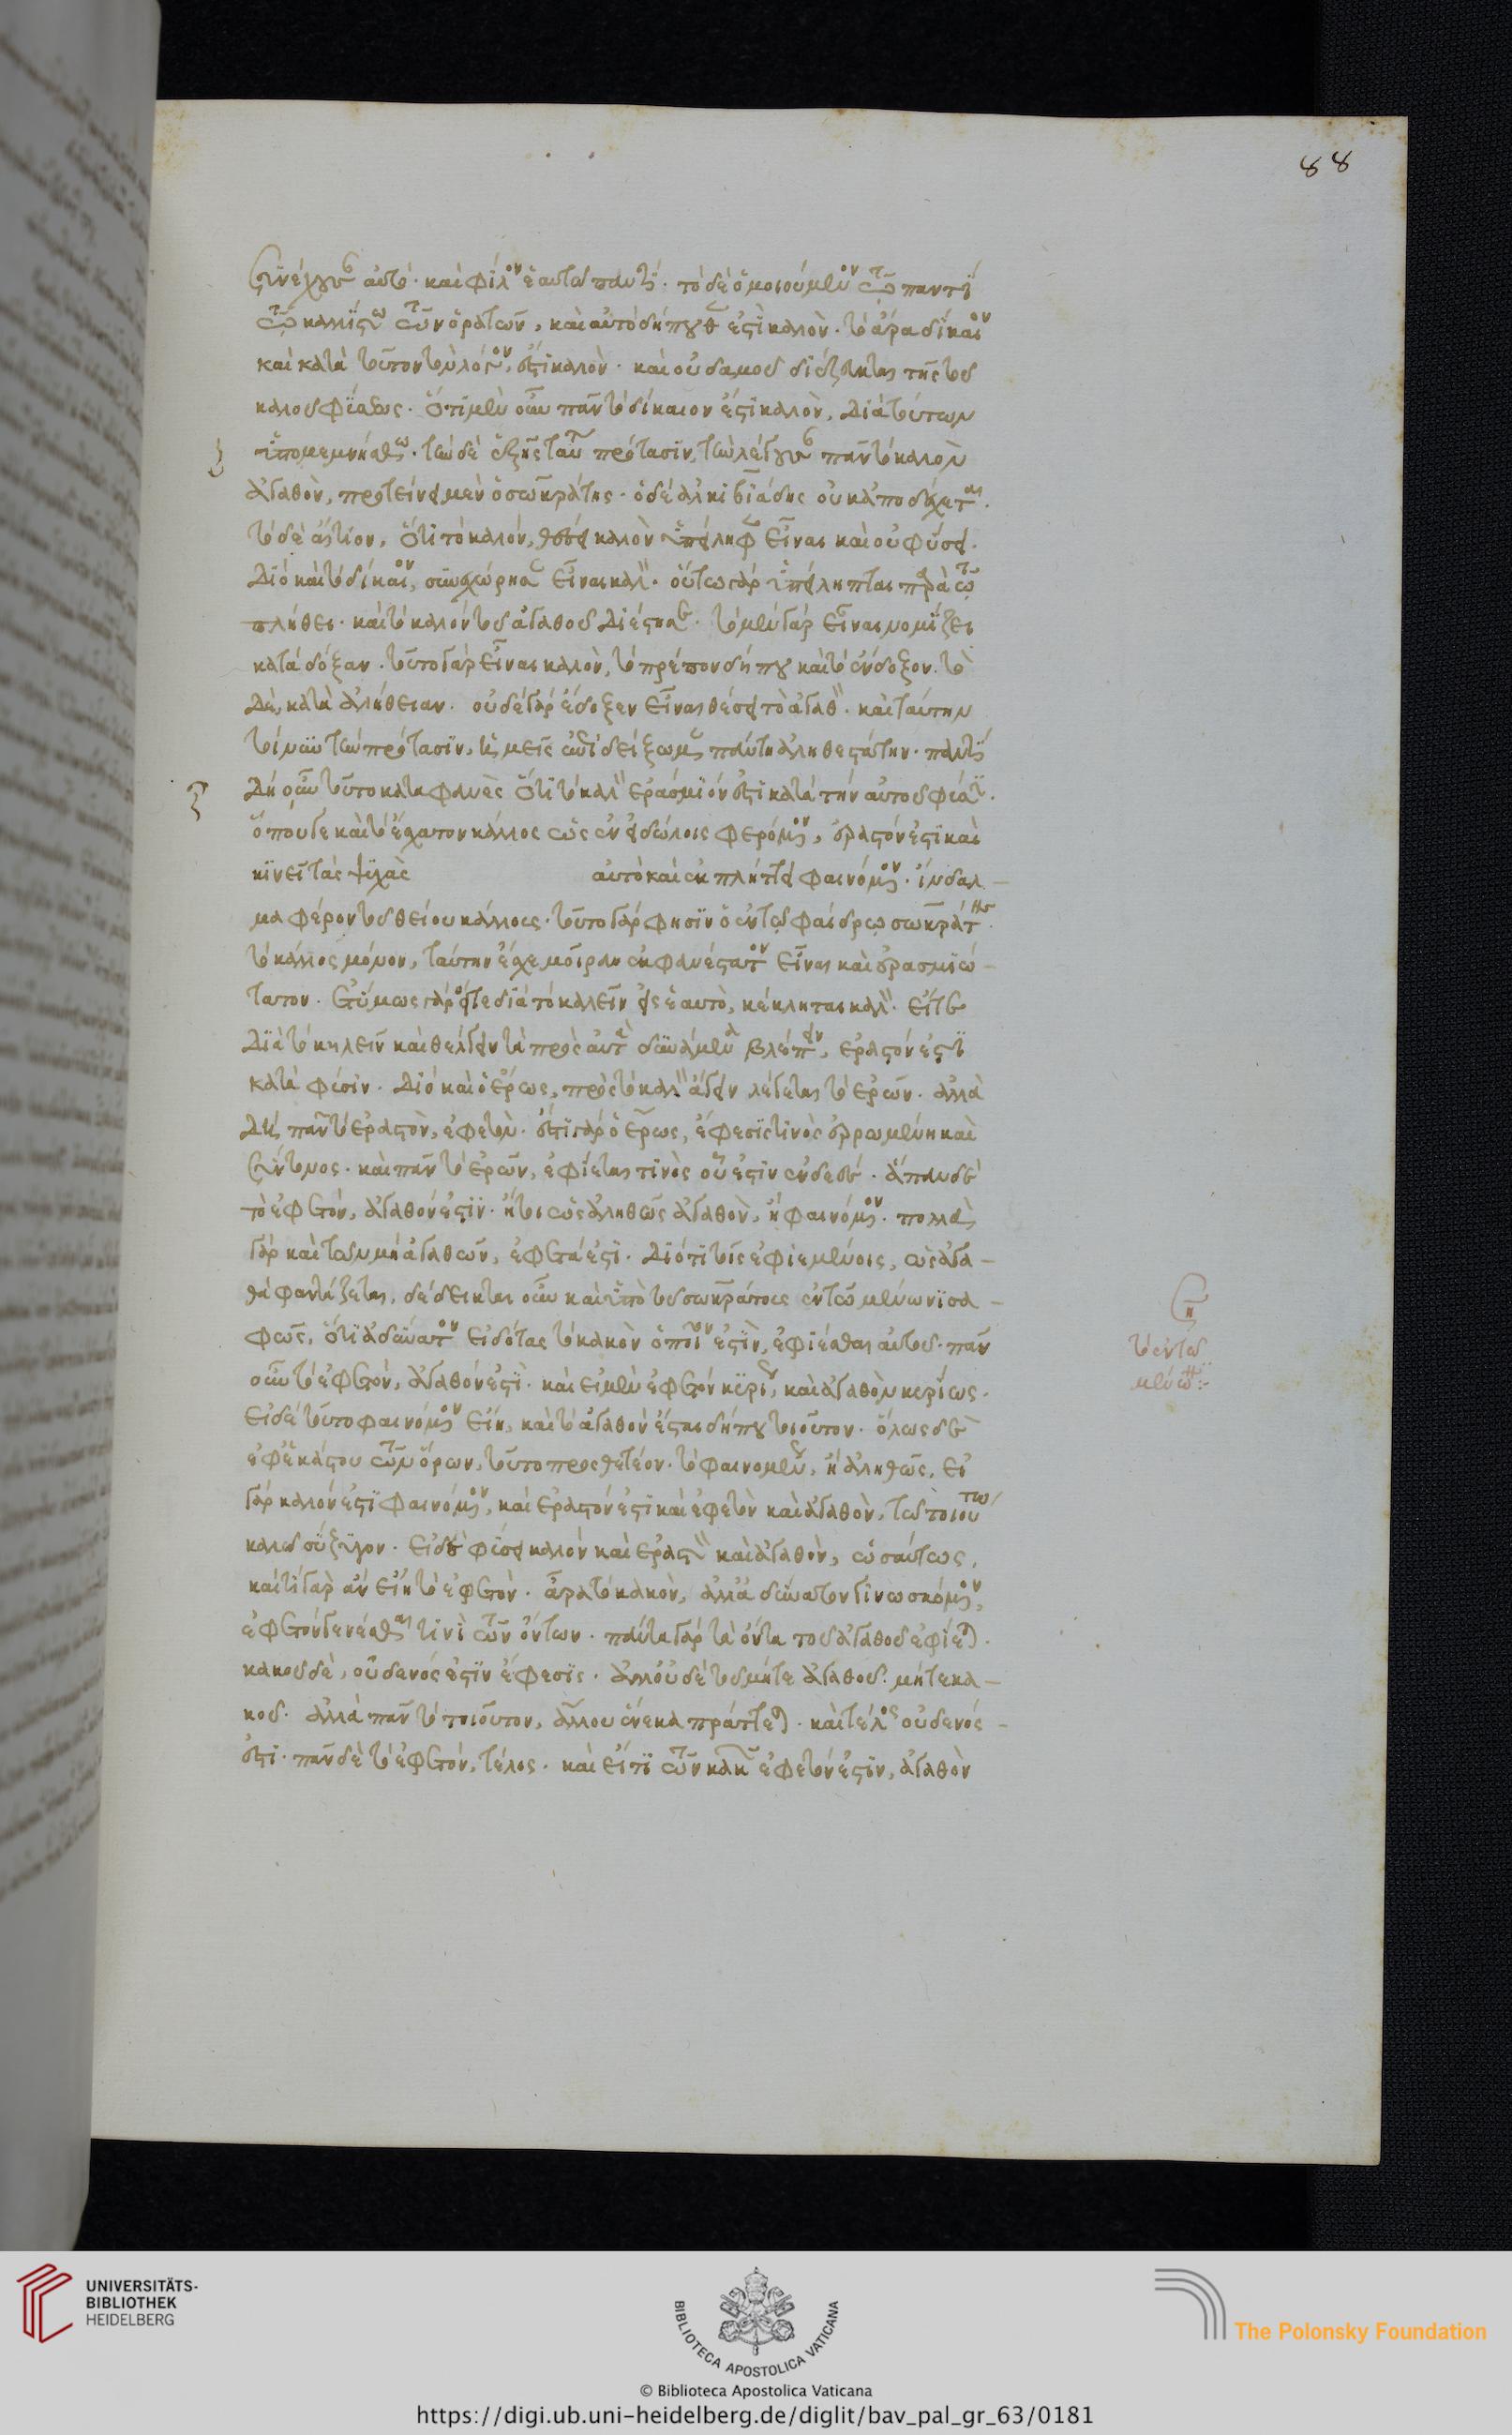 συνέχον αὐτό· καὶ φίλον ἑαυτῷ παντί. τὸ δὲ ὁμοιούμενον τῷ παντὶ
τῷ καλλίστῳ τῶν ὁρατῶν, καὶ αὐτὸ δήπουθεν ἐστὶ καλόν. τὸ ἄρα δίκαιον
καὶ κατὰ τοῦτον τὸν λόγον, ἐστὶ καλόν. καὶ οὐδαμοῦ διέζευκται τῆς τοῦ
καλοῦ φύσεως. ὅτι μὲν οὖν πᾶν τὸ δίκαιον ἐστὶ καλὸν, διὰ τούτων
ὑπομεμνήσθω. τὴν δὲ ἑξῆς ταύτῃ πρότασιν, τὴν λέγουσαν πᾶν τὸ καλὸν
ἀγαθὸν, προτείνει μὲν ὁ σωκράτης. ὁ δὲ ἀλκιβιάδης οὐκ ἀποδέχεται.
τὸ δὲ αἴτιον, ὅτι τὸ καλόν, θέσει καλὸν ὑπείληφεν εἶναι καὶ οὐ φύσει.
διὸ καὶ τὸ δίκαιον, συνεχώρησεν εἶναι καλόν. οὕτω γὰρ ὑπείληπται παρὰ τῷ
πλήθει. καὶ τὸ καλὸν τοῦ ἀγαθοῦ διέστησε. τὸ μὲν γὰρ εἶναι νομίζει
κατὰ δόξαν. τοῦτο γὰρ εἶναι καλὸν, τὸ πρέπον δήπου καὶ τὸ ἔνδοξον. τὸ
δὲ, κατὰ ἀλήθειαν. οὐδὲ γὰρ ἔδοξεν εἶναι θέσει τὸ ἀγαθόν. καὶ ταύτην
τοίνυν τὴν πρότασιν, ἡμεῖς ἐπιδείξωμεν πάντη ἀληθεστάτην. παντὶ
δὴ οὖν τοῦτο καταφανὲς ὅτι τὸ καλὸν ἐράσμιόν ἐστι κατὰ τὴν αὐτοῦ φύσιν.
ὅπου γε καὶ τὸ ἔσχατον κάλλος ὡς ἐν εἰδώλοις φερόμενον, ἐραστόν ἐστι καὶ
κινεῖ τὰς ψυχὰς αὐτὸ καὶ ἐκπλήττει φαινόμενον. ἴνδαλ-
μα φέρον τοῦ θείου κάλλους. τοῦτο γάρ φησιν ὁ ἐν τῷ φαίδρῳ σωκράτης.
τὸ κάλλος μόνον, ταύτην ἔσχε μοῖραν ἐκφανέστατον εἶναι καὶ ἐρασμιώ-
τατον. ἐτύμως γὰρ εἴτε διὰ τὸ καλεῖν εἰς ἑαυτὸ, κέκληται καλόν. εἴτε
διὰ τὸ κηλεῖν καὶ θέλγειν τὰ πρὸς αὐτὸ δυνάμενα βλέπειν, ἐραστόν ἐστι
κατὰ φύσιν. διὸ καὶ ὁ ἔρως, πρὸς τὸ καλὸν ἄγειν λέγεται τὸ ἐρῶν. ἀλλὰ
δὴ πᾶν τὸ ἐραστὸν, ἐφετόν. ἔστι γὰρ ὁ ἔρως, ἔφεσίς τινος ἐρρωμένη καὶ
σύντονος. καὶ πᾶν τὸ ἐρῶν, ἐφίεταί τινος οὗ ἐστιν ἐνδεές. ἅπαν δὲ
τὸ ἐφετόν, ἀγαθόν ἐστιν. ἤτοι ὡς ἀληθῶς ἀγαθὸν, ἢ φαινόμενον. πολλὰ
γὰρ καὶ τῶν μὴ ἀγαθῶν, ἐφετά ἐστι. διότι τοῖς ἐφιεμένοις, ὡς ἀγα-
θὰ φαντάζεται. δέδεικται οὖν καὶ ὑπὸ τοῦ σωκράτους ἐν τῷ μένωνι σα-
φῶς, ὅτι ἀδύνατον εἰδότας τὸ κακὸν ὁποῖόν ἐστιν, ἐφίεσθαι αὐτοῦ. πᾶν
οὖν τὸ ἐφετόν, ἀγαθόν ἐστι. καὶ εἰ μὲν ἐφετόν κυρίως, καὶ ἀγαθὸν κυρίως.
εἰ δὲ τοῦτο φαινόμενον εἴη, καὶ τὸ ἀγαθὸν ἔσται δήπου τοιοῦτον. ὅλως δὲ
ἐφ' ἑκάστου τῶν ὅρων, τοῦτο προσθετέον. τὸ φαινομένως, ἢ ἀληθῶς. εἰ
γὰρ καλόν ἐστι φαινόμενον, καὶ ἐραστόν ἐστι καὶ ἐφετὸν καὶ ἀγαθὸν, τῷ τοιούτῳ
καλῷ σύζυγον. εἰ δὲ φύσει καλὸν καὶ ἐραστὸν καὶ ἀγαθὸν, ὡσαύτως.
καὶ τί γὰρ ἂν εἴη τὸ ἐφετόν. ἆρα τὸ κακὸν, ἀλλ' ἀδύνατον γινωσκόμενον,
ἐφετὸν γενέσθαι τινὶ τῶν ὄντων. πάντα γὰρ τὰ ὄντα τοῦ ἀγαθοῦ ἐφίεται.
κακοῦ δὲ, οὐδενός ἐστιν ἔφεσις. ἀλλ' οὐδὲ τοῦ μήτε ἀγαθοῦ. μήτε κα-
κοῦ. ἀλλὰ πᾶν τὸ τοιοῦτον, ἄλλου ἕνεκα πράττεται. καὶ τέλος οὐδενός
ἐστι. πᾶν δὲ τὸ ἐφετόν, τέλος. καὶ εἴ τι τῶν κακῶν ἐφετόν ἐστιν, ἀγαθὸν
88
τὸ ἐν τῷ
μένωνι:-
UNIVERSITÄTS-
BIBLIOTHEK
HEIDELBERG
BIBLIOTECA APOSTOLICA VATICANA
© Biblioteca Apostolica Vaticana
The Polonsky Foundation
https://digi.ub.uni-heidelberg.de/diglit/bav_pal_gr_63/0181